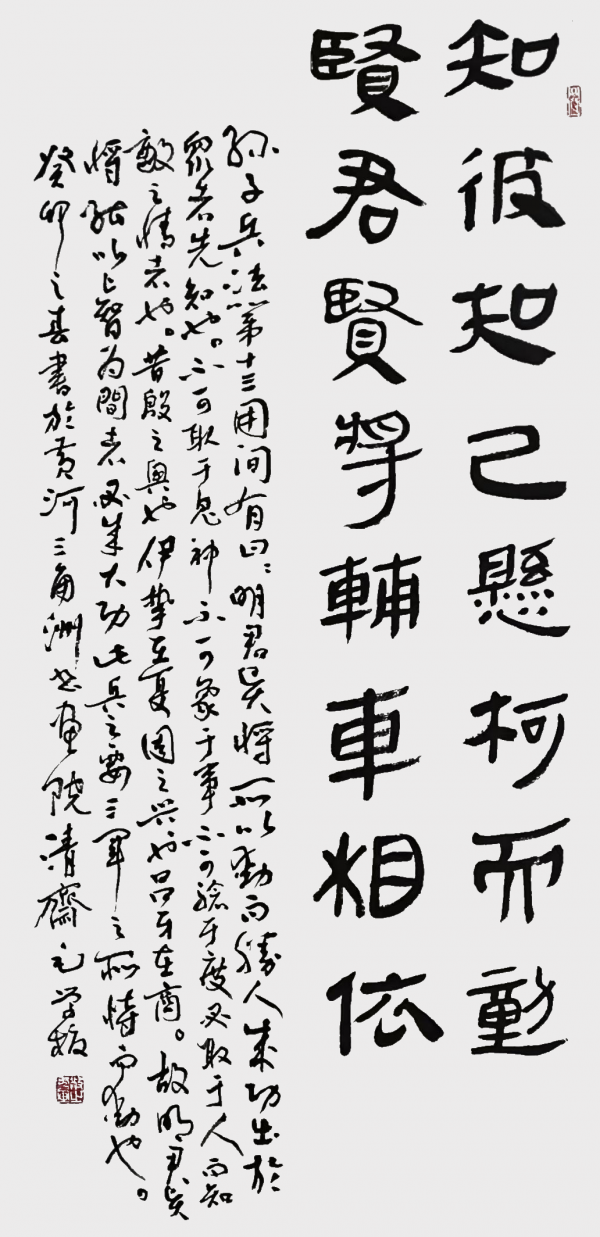 知彼知己懸柯而動
賢君賢將輔車相依
孫子兵法第十三用间有曰：明君賢將所以動而勝人成功出於
眾者先知也。不可取于鬼神不可象于事不可驗于度必取于人而知
敵之情者也。昔殷之興也伊摯在夏周之兴也吕牙在商。故明君賢
將能以上智为間者必成大功此兵之要三軍之所恃而動也。
癸卯之春書於黄河三角洲书画院清齋